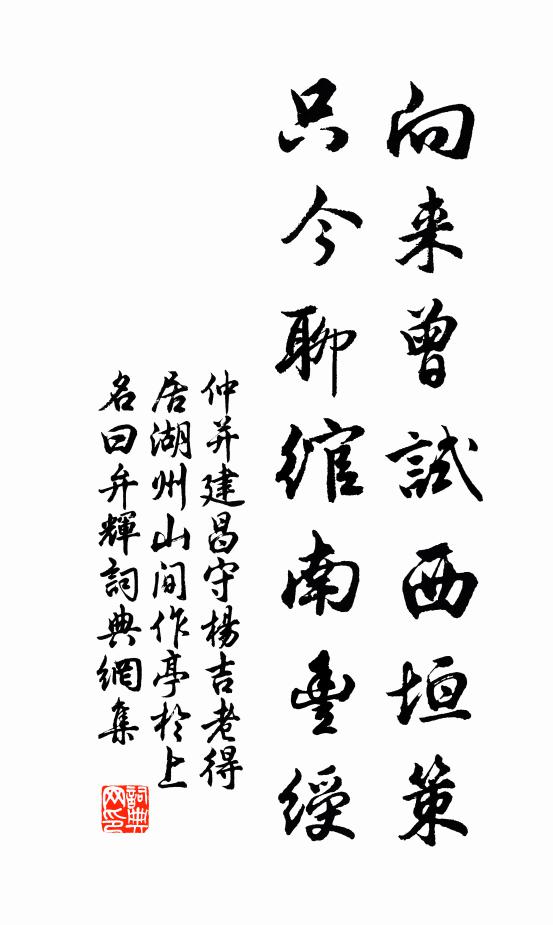 向来曾試西垣策
只今聊綰南豊綬
仲并建昌守楊吉老得
居湖州山间作亭於上
名曰弁輝詞典網集
詞典网印